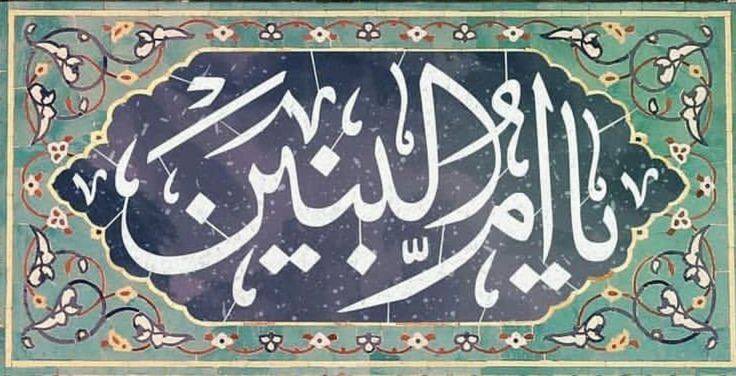 یا ام البنین